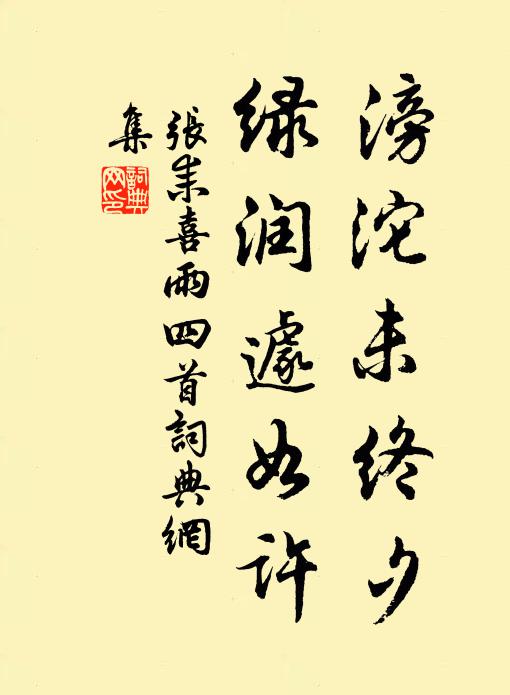 滂沱未终夕
绿润遽如许
張耒喜雨四首詞典網
集
詞典网印